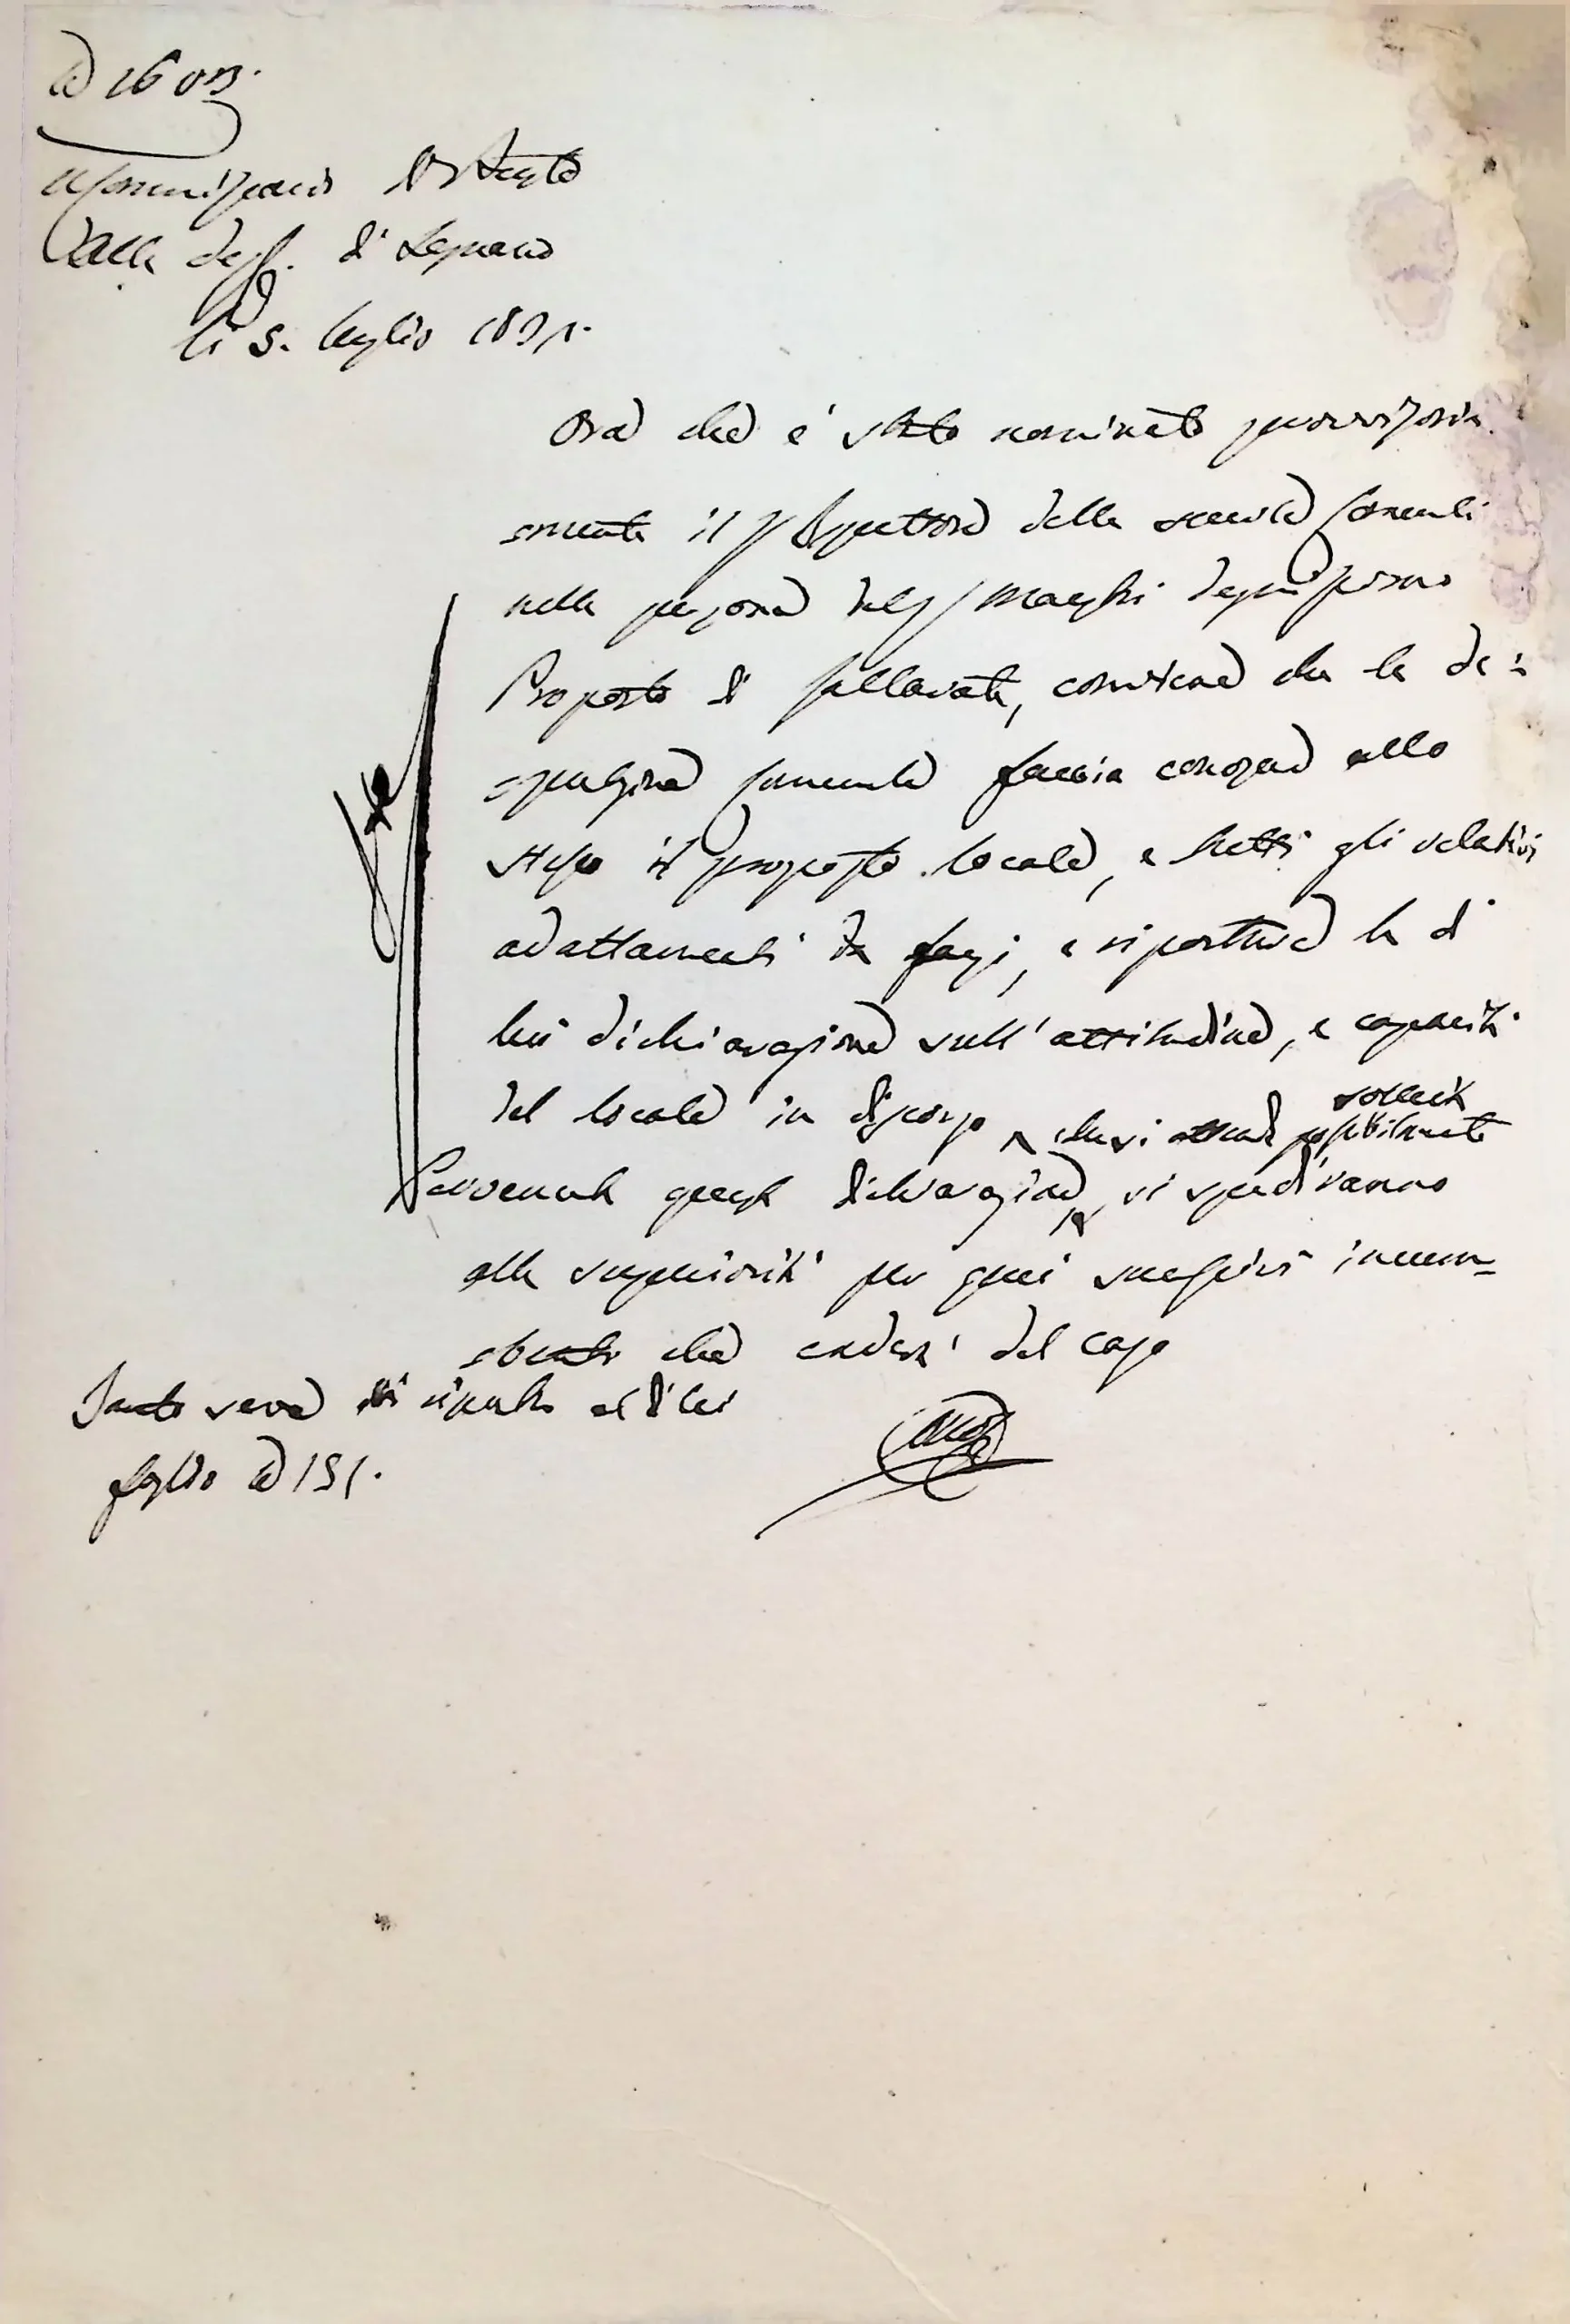 a 1603.
Commissario Distrettle
Dalla Dep. di Legnano
li 5. luglio 1831.
Ora che è stato nominato provvisoria
mente il Ispettore delle scuole comunli
nella persona del Maghi degnissimo
Proposto di Fallavata, conviene che la De=
putazione comunale faccia conoscere allo
stesso il proposto locale, e tutti gli relativi
adattamenti da farsi, e riportare la di
lui dichiarazione sull'attitudine, e capacità
del locale in discorso
sollecita
possibilmente
Pervenuta questa dichiarazione, si spediranno
alla superiorità per quei successivi incum=
benti che crederà del caso
Tanto serve di riscontro al di lei
foglio a 151.